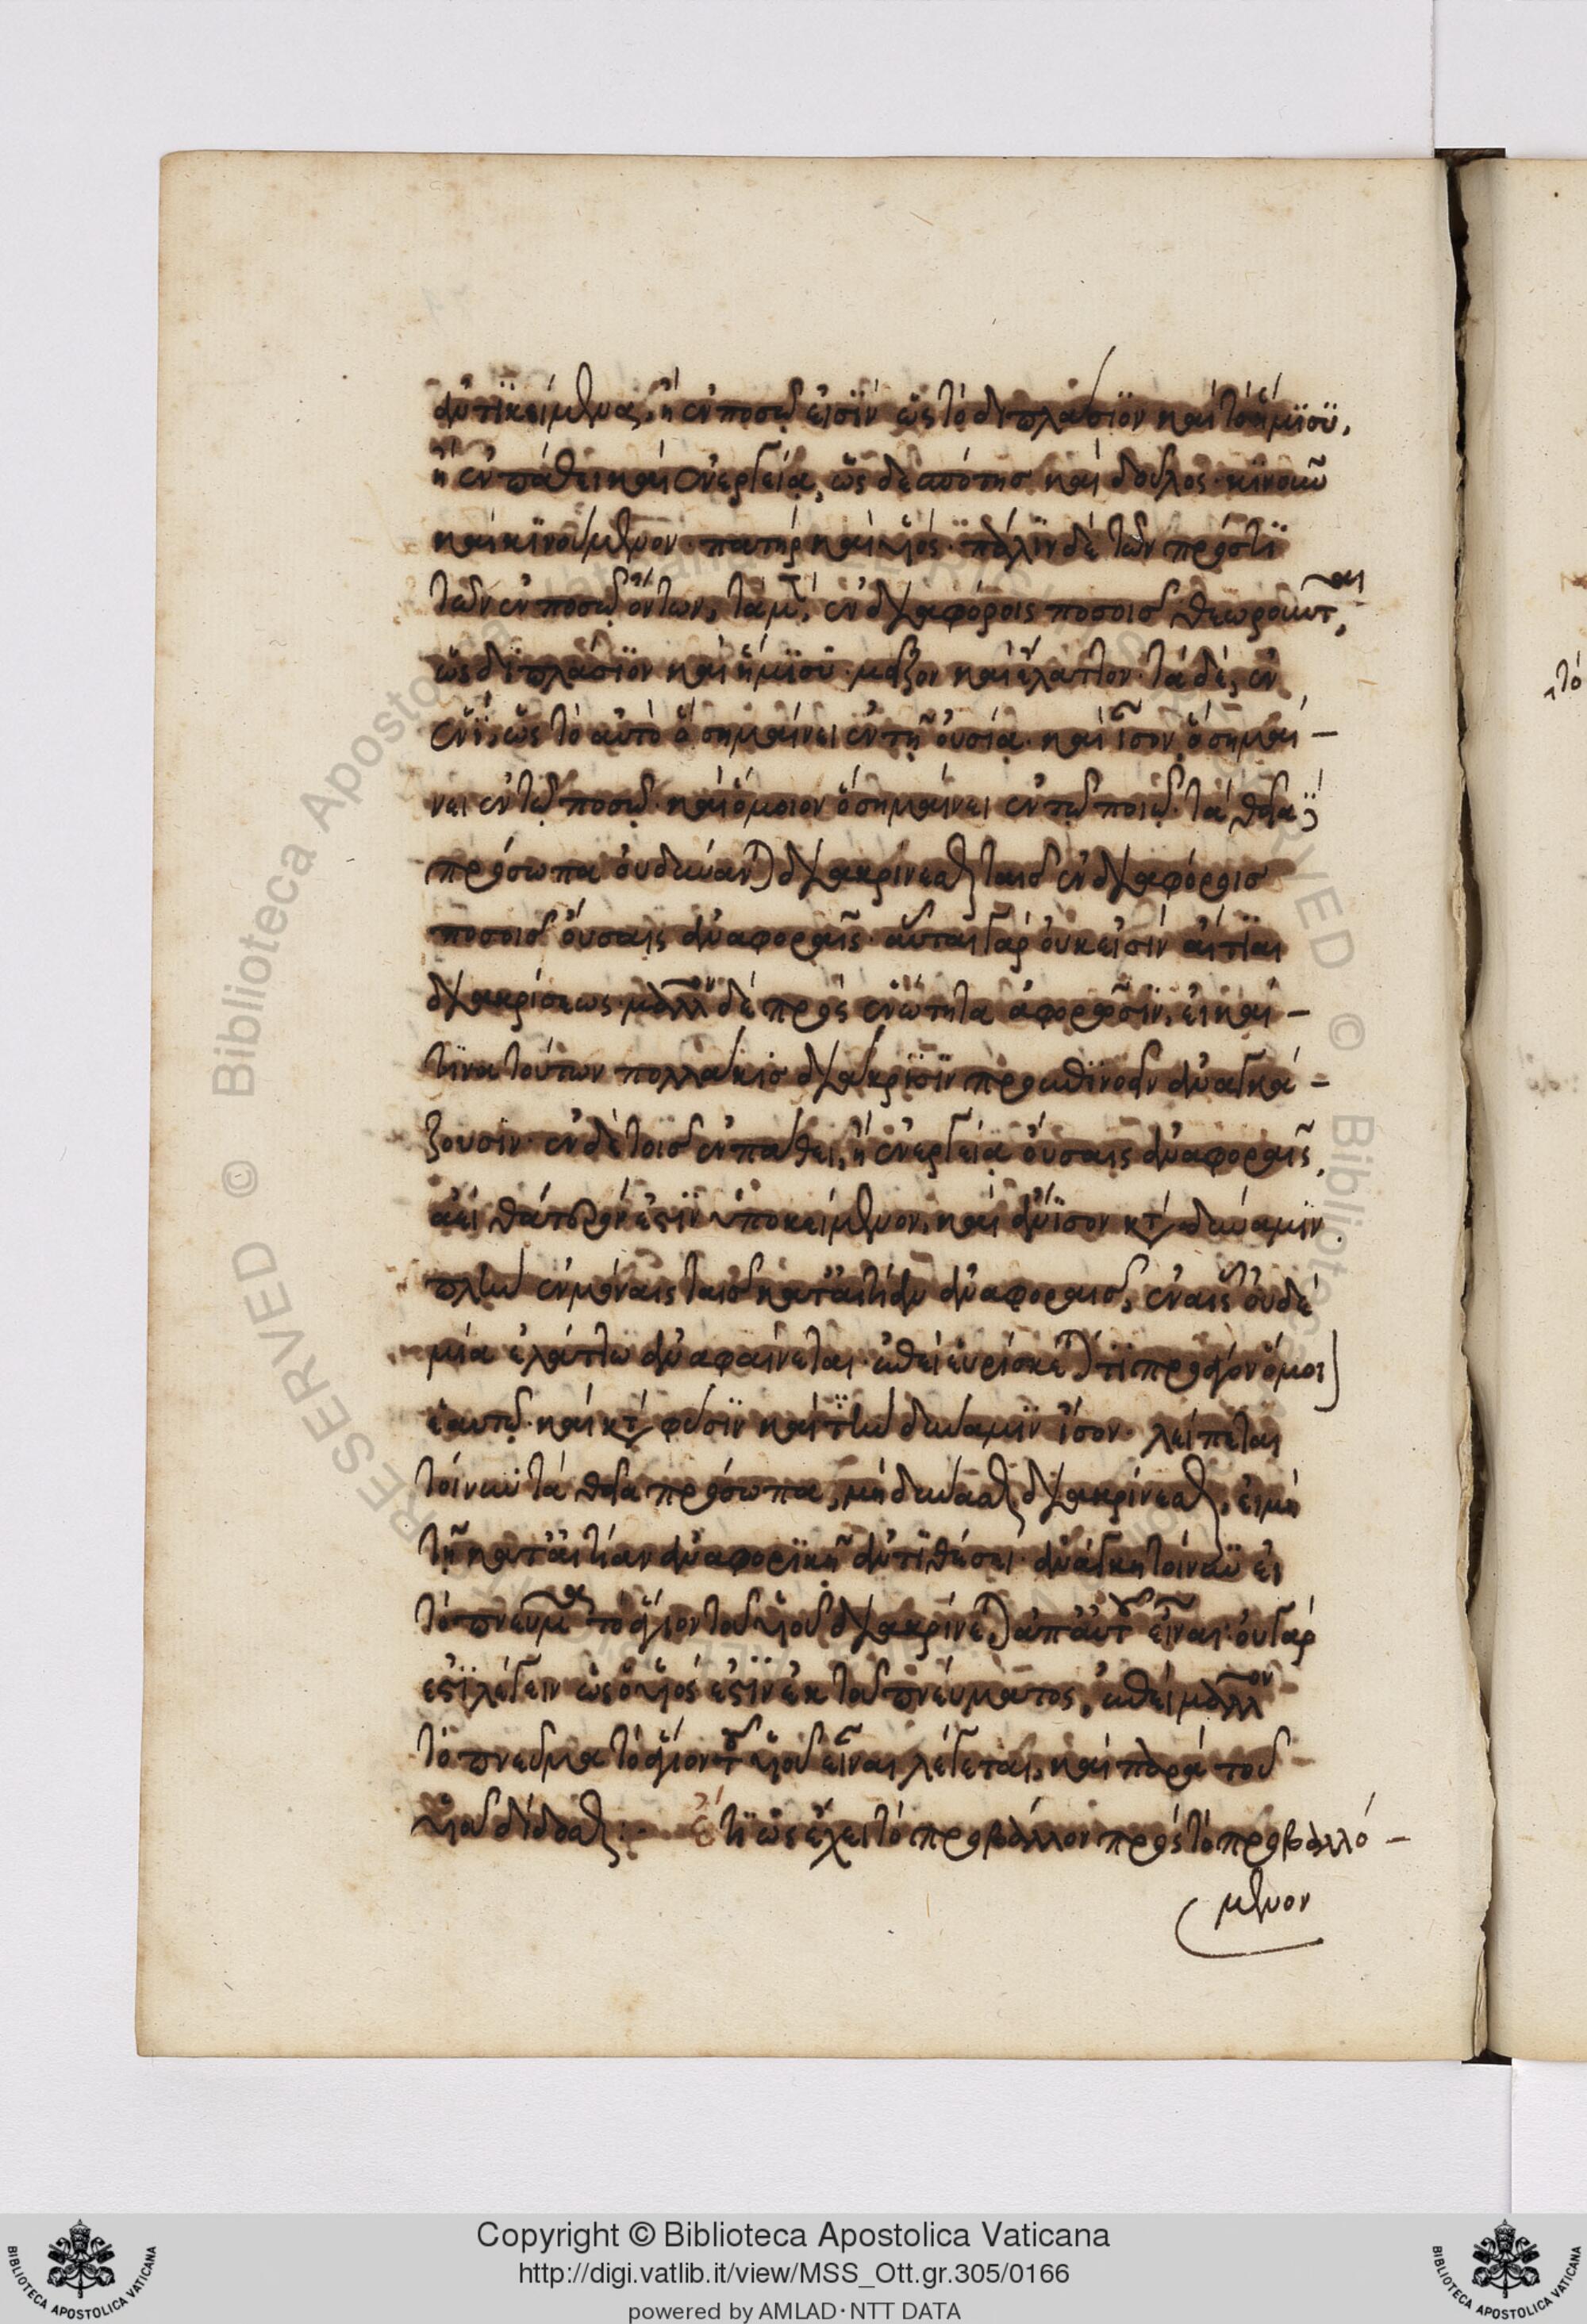 ἀντικειμένας, ἢ ἐν ποσῷ εἰσὶν ὡς τὸ διπλάσιον καὶ τὸ ἥμισυ,
ἢ ἐν πάθει καὶ ἐνεργείᾳ, ὡς δεσπότης καὶ δοῦλος· κινοῦν
καὶ κινούμενον· πατὴρ καὶ υἱός· πάλιν δὲ τῶν πρός τι
τῶν ἐν ποσῷ ὄντων, τὰ μὲν, ἐν διαφόροις ποσοῖς θεωροῦνται,
ὡς διπλάσιον καὶ ἥμισυ· μεῖζον καὶ ἔλαττον· τὰ δὲ, ἐν
ἑνί, ὡς τὸ αὐτὸ ὃ σημαίνει ἐν τῇ οὐσίᾳ· καὶ ἴσον, ὃ σημαί-
νει ἐν τῷ ποσῷ· καὶ ὅμοιον ὃ σημαίνει ἐν τῷ ποιῷ· τὰ θεῖα
πρόσωπα οὐ δύνανται διακρίνεσθαι ταῖς ἐν διαφόροις
ποσοῖς οὔσαις ἀναφοραῖς· αὗται γὰρ οὐκ εἰσὶν αἰτίαι
διακρίσεως· μᾶλλον δὲ πρὸς ἑνότητα ἀφορῶσιν, εἰ καὶ
τινα τούτων πολλάκις διάκρισιν προεπινοεῖν ἀναγκά-
ζουσιν· ἐν δὲ τοῖς ἐν πάθει, ἢ ἐνεργείᾳ οὔσαις ἀναφοραῖς,
ἀεὶ θάτερόν ἐστιν ὑποκείμενον, καὶ ἄνισον κατὰ δύναμιν.
πλὴν ἐν μόναις ταῖς κατ' αἰτίαν ἀναφοραῖς, ἐν αἷς οὐδε
μία ἐλάττωσις ἀναφαίνεται· ἐπεὶ εὑρίσκεται τι προάγον ὅμοιον
ἑαυτῷ· καὶ κατὰ φύσιν καὶ τὴν δύναμιν ἴσον· λείπεται
τοίνυν τὰ θεῖα πρόσωπα, μὴ δύνασθαι διακρίνεσθαι, εἰ μὴ
τῇ κατ' αἰτίαν ἀναφορικῇ ἀντιθέσει· ἀνάγκη τοίνυν εἰ
τὸ πνεῦμα τὸ ἅγιον τοῦ υἱοῦ διακρίνεται ἀπ' αὐτοῦ εἶναι· οὐ γὰρ
ἔστι λέγειν ὡς ὁ υἱός ἐστιν ἐκ τοῦ πνεύματος, ἐπεὶ μᾶλλον
τὸ πνεῦμα τὸ ἅγιον τοῦ υἱοῦ εἶναι λέγεται, καὶ παρὰ τοῦ
υἱοῦ δίδοσθαι:· Ἔτι ὡς ἔχει τὸ προβάλλον πρὸς τὸ προβαλλό-
μενον
Copyright © Biblioteca Apostolica Vaticana
http://digi.vatlib.it/view/MSS_Ott.gr.305/0166
powered by AMLAD·NTT DATA